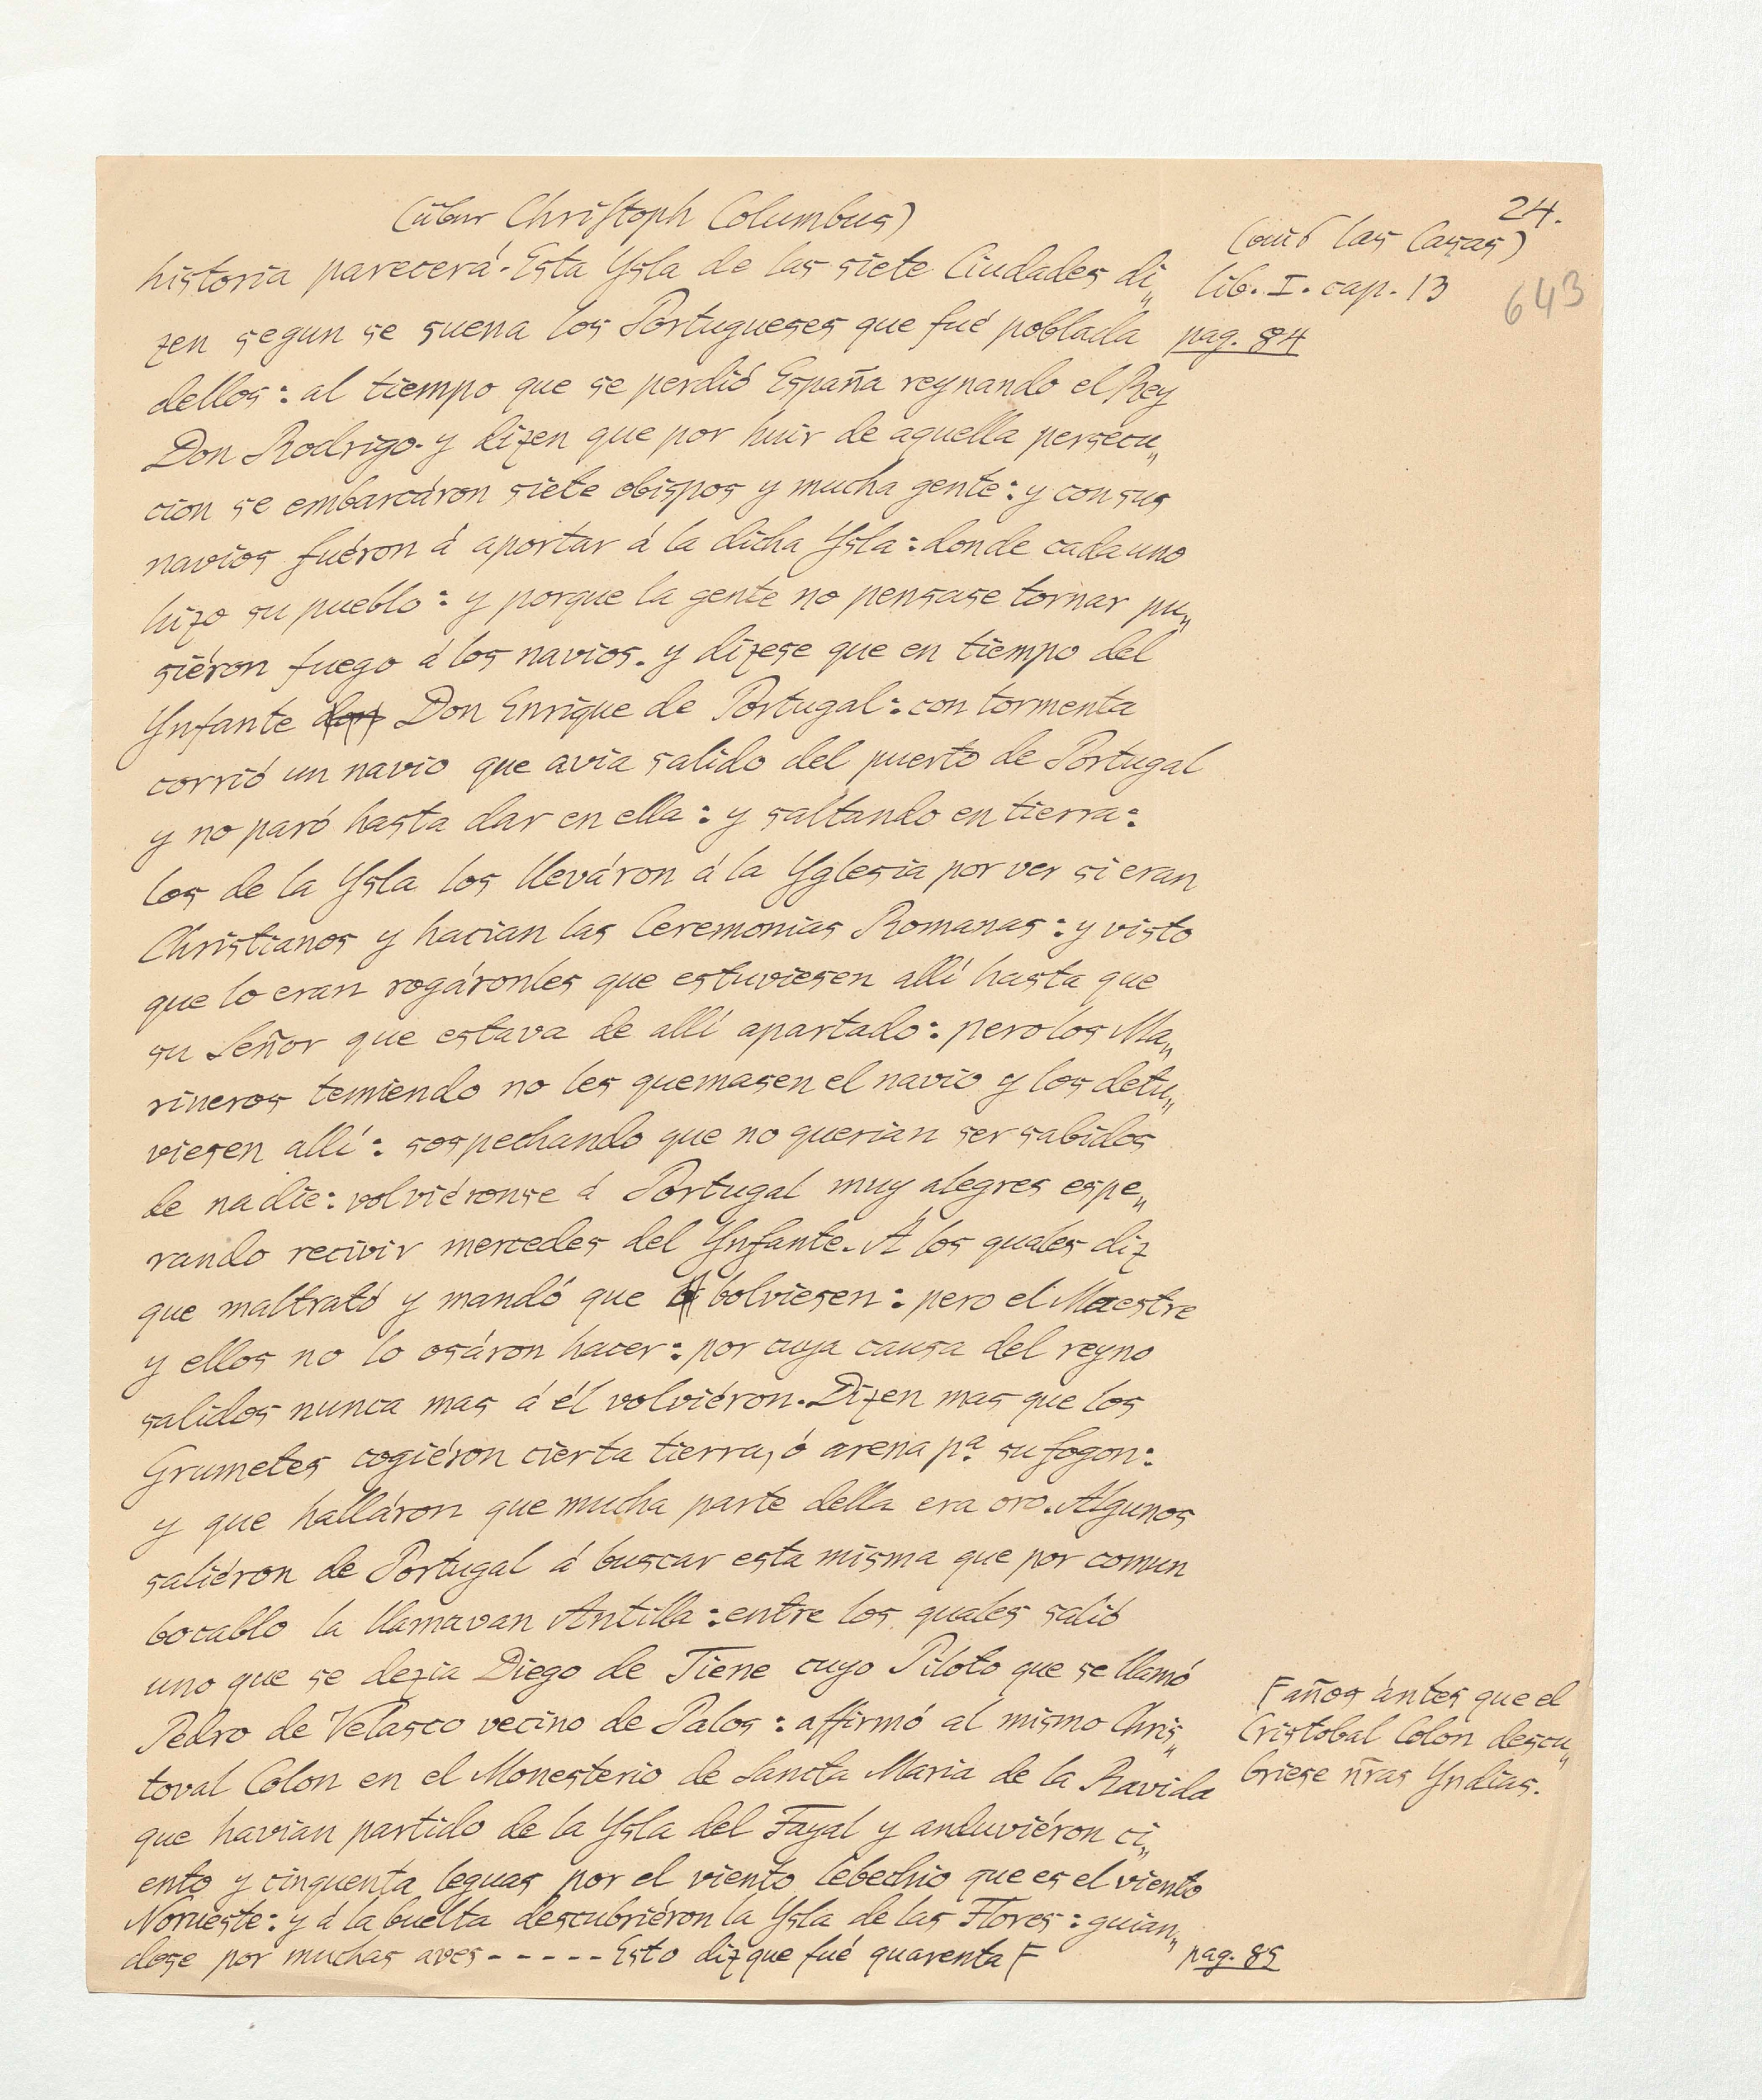 24.
(über Christoph Columbus)
(aus las Casas)
historia parecerá. Esta Ysla de las siete Ciudades di„
lib. I. cap. 13
643
zen segun se suena los Portugueses que fué poblada
pag. 84
dellos: al tiempo que se perdió España reynando el Rey
Don Rodrigo. y dizen que por huir de aquella persecu„
cion se embarcáron siete obispos y mucha gente: y con sus
navios fuéron á aportar á la dicha Ysla: donde cada uno
hizo su pueblo: y porque la gente no pensase tornar pu„
siéron fuego á los navios. y dizese que en tiempo del
Ynfante don Don Enrique de Portugal: con tormenta
corrió un navio que avia salido del puerto de Portugal
y no paró hasta dar en ella: y saltando en tierra:
los de la Ysla los lleváron á la Yglesia por ver si eran
Christianos y hacian las Ceremonias Romanas: y visto
que lo eran rogáronles que estuviesen allí hasta que
su Señor que estava de allí apartado: pero los Ma„
rineros temiendo no les quemasen el navio y los detu„
viesen allí: sospechando que no querian ser sabidos
de nadie: volviéronse á Portugal muy alegres espe„
rando recivir mercedes del Ynfante. A los quales diz
que maltrató y mandó que bolviesen: pero el Maestre
y ellos no lo osáron hacer: por cuya causa del reyno
salidos nunca mas á él volviéron. Dizen mas que los
Grumetes cogiéron cierta tierra, ó arena pª. su fogon:
y que halláron que mucha parte della era oro. Algunos
saliéron de Portugal á buscar esta misma que por comun
bocablo la llamavan Antilla: entre los quales salió
uno que se dezia Diego de Tiene cuyo Piloto que se llamó
Pedro de Velasco vecino de Palos: affirmó al mismo Chris„
toval Colon en el Monesterio de Sancta Maria de la Ravida
que havian partido de la Ysla del Fayal y anduviéron ci„
ento y cinquenta leguas por el viento lebechio que es el viento
Norueste: y á la buelta descubriéron la Ysla de las Flores: guian„
dose por muchas aves - - - - - Esto diz que fué quarenta F
F años ántes que el
Cristobal Colon descu„
briese ñras Yndias.
pag. 85